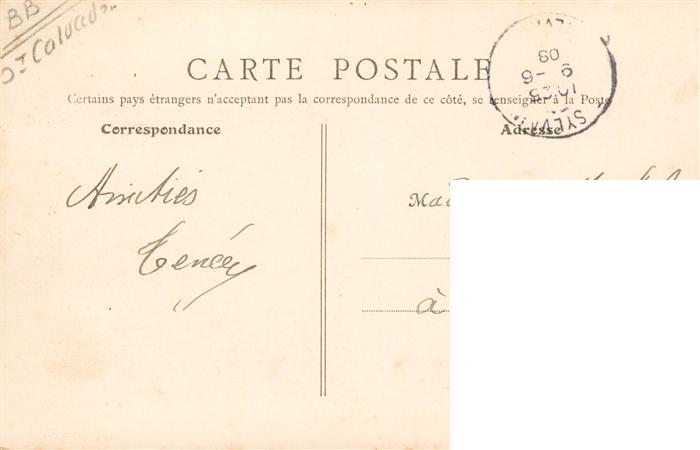 BB
Calvados
CARTE POSTALE
Certains pays étrangers n'acceptant pas la correspondance de ce côté, se renseigner à la Poste
Correspondance
Adresse
Amitiés
à